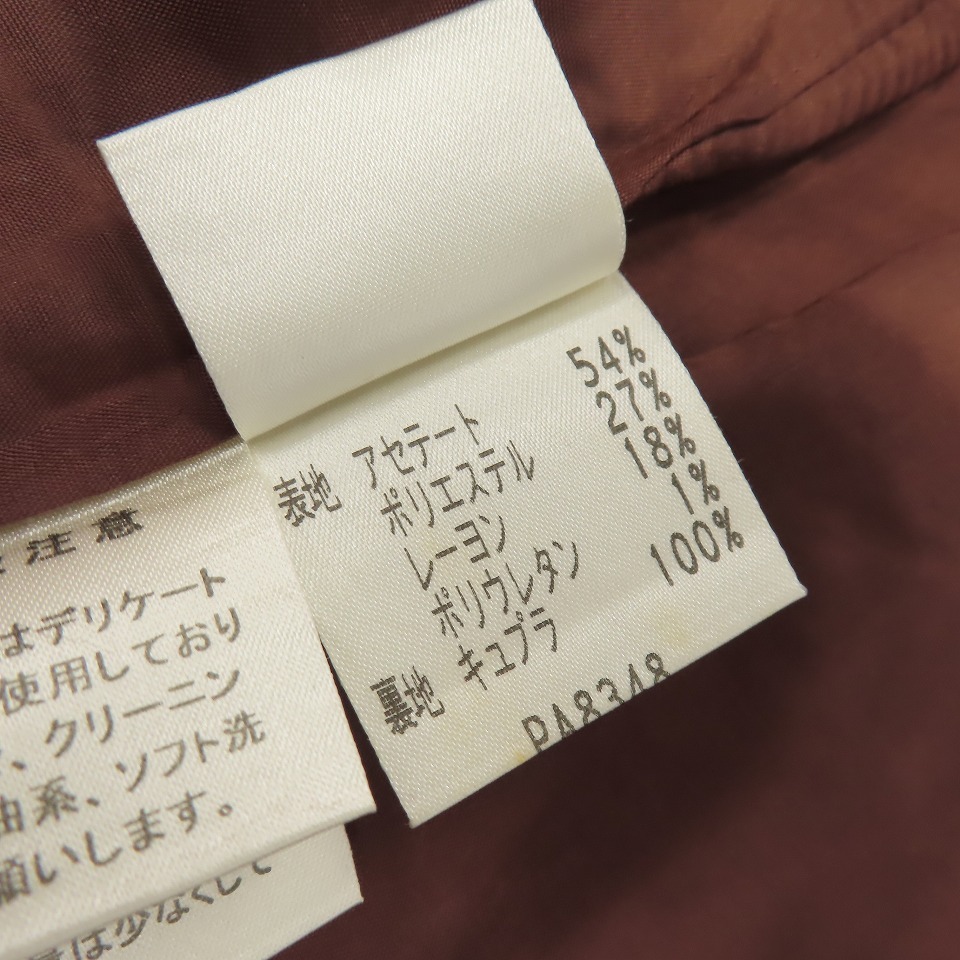 表地 アセテート 54%
ポリエステル 27%
レーヨン 18%
ポリウレタン 1%
裏地 キュプラ 100%
PA8348
注意
はデリケート
使用しており
、クリーニン
油系、ソフト洗
願いします。
は少なくして